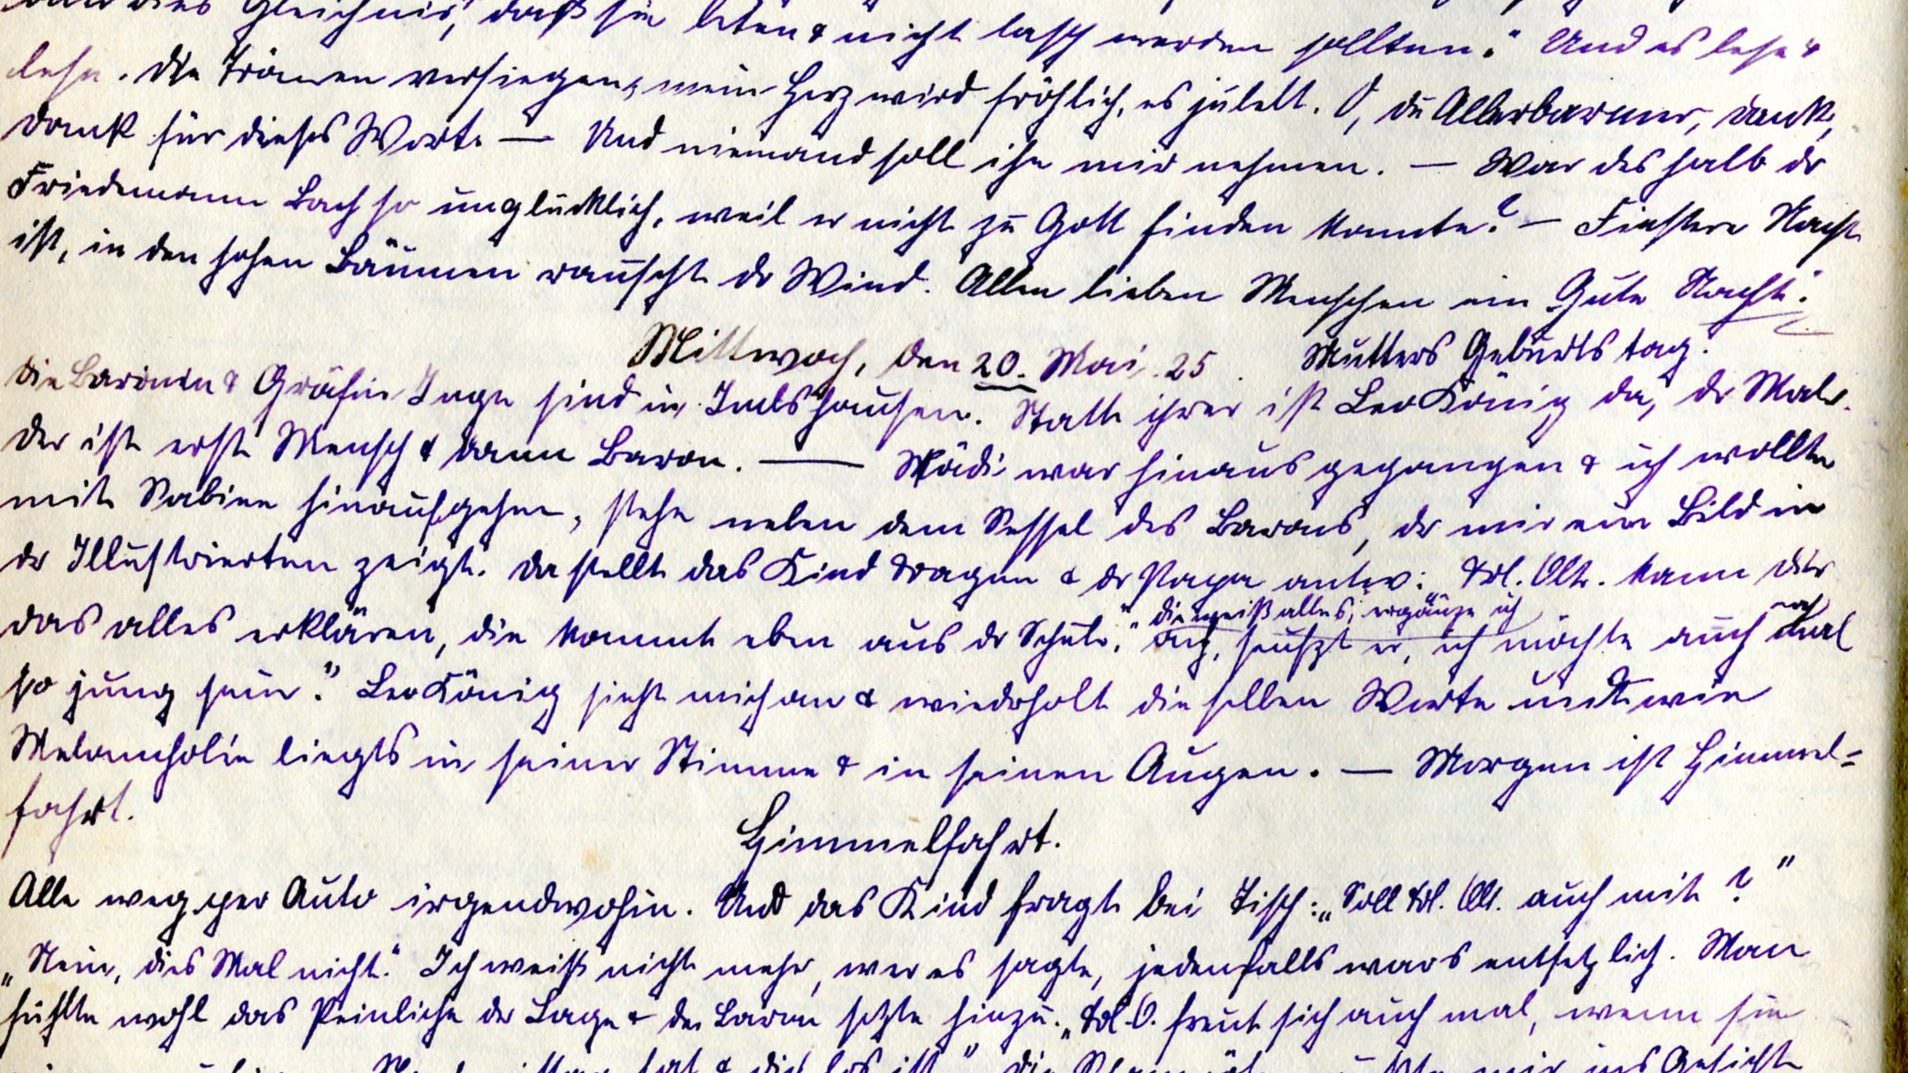 dies Gleichnis, daß sie beten & nicht lasch werden sollten." Und es lese &
lese. Die Tränen versiegen, mein Herz wird fröhlich, es jubelt. O, du Allerbarmer, Dank,
Dank für dieses Wort. — Und niemand soll ihn mir nehmen. — War deshalb dr
Friedemann Bach so unglücklich, weil er nicht zu Gott finden konnte? — Finstere Nacht
ist, in den hohen Bäumen rauscht dr Wind. Allen lieben Menschen ein Gute Nacht.
Mittwoch, den 20. Mai 25. Mutters Geburtstag.
Die Baronin & Gräfin Inge sind in Imbshausen. Statt ihrer ist Leo König da, dr Maler.
Der ist erst Mensch & dann Baron. — Mädi war hinausgegangen & ich wollte
mit Sabine hinaufgehen, stehe neben dem Sessel des Barons, dr mir ein Bild in
dr Illustrierten zeigt. Da stellt das Kind Fragen & dr Papa antw: Frl. Olt. kann dir
das alles erklären, die kommt eben aus dr Schule," die weiß alles, ergänze ich
Ach, seufzt er, ich möchte auch noch mal
so jung sein." Leo König sieht mich an & wiederholt dieselben Worte und wie
Melancholie liegts in seiner Stimme & in seinen Augen. — Morgen ist Himmel=
fahrt.
Himmelfahrt.
Alle weg per Auto irgendwohin. Und das Kind fragt bei Tisch: „Soll Frl. Olt. auch mit?"
„Nein, dies Mal nicht." Ich weiß nicht mehr, wer es sagte, jedenfalls wars entsetzlich. Man
fühlte wohl das Peinliche der Lage & der Baron setzte hinzu: „Frl. O. freut sich auch mal, wenn sie
hat & die los ist" mir ins Gesicht